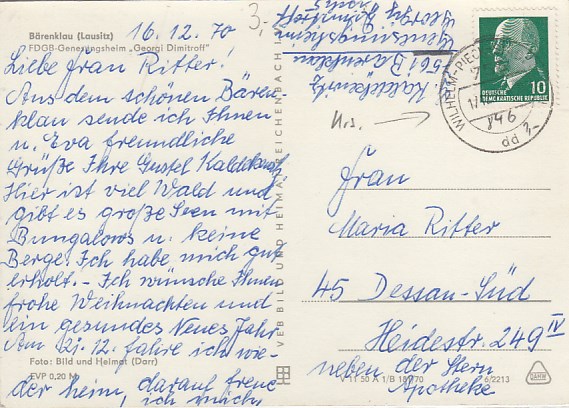 16.12.70
Bärenklau (Lausitz)
FDGB-Genesungsheim „Georgi Dimitroff"
Liebe Frau Ritter!
Aus dem schönen Bären
klau sende ich Ihnen
u. Eva freundliche
Grüße Ihre Gustel
Hier ist viel Wald und
gibt es große Seen mit
Bungalows u. keine
Berge. Ich habe mich gut
erholt. - Ich wünsche Ihnen
frohe Weihnachten und
ein gesundes Neues Jahr
Am 21.12. fahre ich wie-
der heim, darauf freue
ich mich
Foto: Bild und Heimat (Darr)
EVP 0,20 M
VEB BILD UND HEIMAT REICHENBACH I.
3.
Genesungsheim
7561 Bärenklau
DEUTSCHE
DEMOKRATISCHE REPUBLIK
10
WILHELM-PIECK-
846
dd
Frau
Maria Ritter
45 Dessau-Süd
Heidestr. 249 IV
neben der Stern
Apotheke
V 11 50 A 1/B
6/2213